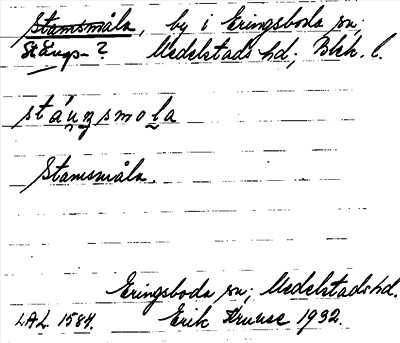 Stamsmåla, by i Eringsboda sn;
Stångs-? Medelstads hd; Blek. l.
stáu̯ŋsmoḷa
Stamsmåla.
Eringsboda sn; Medelstads hd.
LAL 1584. Erik Kruuse 1932.